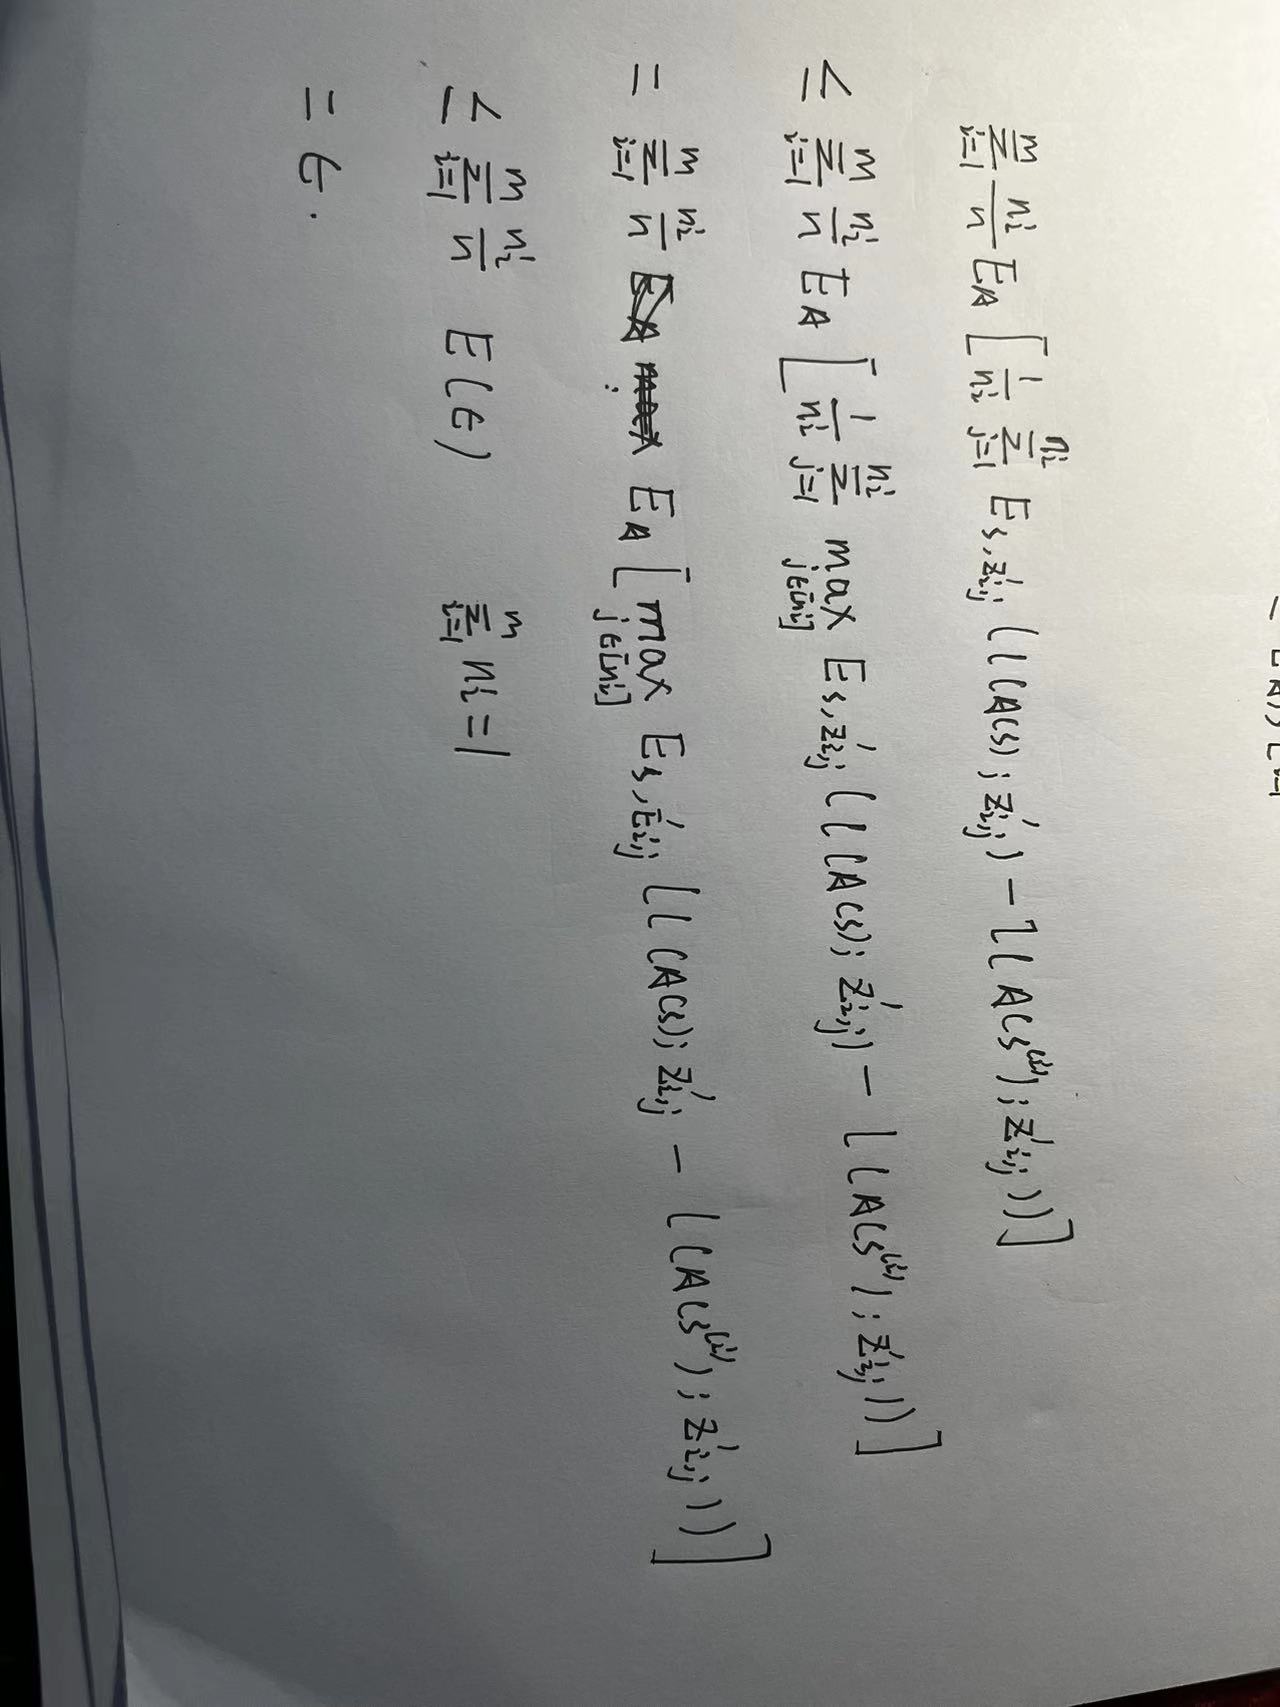 \sum_{i=1}^{m} \frac{n_i}{n} E_A [ \frac{1}{n_i} \sum_{j=1}^{n_i} E_{S,z'_{i,j}} ( l(A(S); z'_{i,j}) - l(A(S^{(i)}); z'_{i,j})) ]
\leq \sum_{i=1}^{m} \frac{n_i}{n} E_A [ \frac{1}{n_i} \sum_{j=1}^{n_i} \max_{j \in [n_i]} E_{S,z'_{i,j}} ( l(A(S); z'_{i,j}) - l(A(S^{(i)}); z'_{i,j})) ]
= \sum_{i=1}^{m} \frac{n_i}{n} E_A [ \max_{j \in [n_i]} E_{S,z'_{i,j}} ( l(A(S); z'_{i,j} - l(A(S^{(i)}); z'_{i,j})) ]
\leq \sum_{i=1}^{m} \frac{n_i}{n} E(\epsilon) \sum_{i=1}^{m} n_i = 1
= \epsilon.